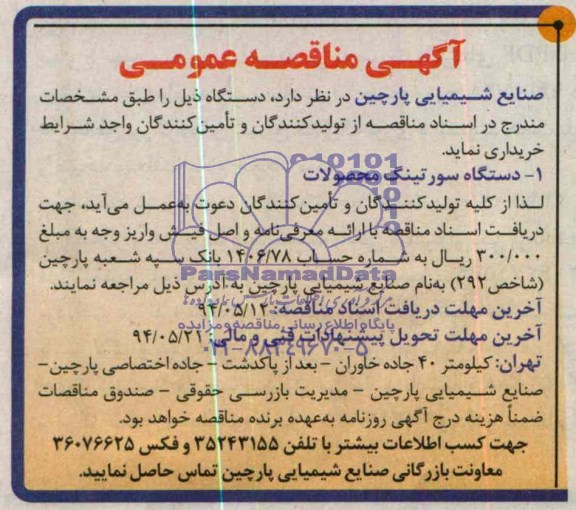 آگهـی مناقصـه عمومـی
صنایع شـیمیایی پارچین در نظر دارد، دسـتگاه ذیل را طبق مشـخصات
مندرج در اسـناد مناقصـه از تولیدکنندگان و تأمین‌کنندگان واجد شـرایط
خریداری نماید.
۱- دستگاه سورتینگ محصولات
لـذا از کلیه تولیدکننـدگان و تأمین‌کنندگان دعوت به‌عمـل می‌آید، جهت
دریافـت اسـناد مناقصه با ارائـه معرفی‌نامه و اصل فیـش واریز وجه به مبلغ
۳۰۰/۰۰۰ ریـال به شـماره حسـاب ۱۴۰۶/۷۸ بانک سـپه شـعبه پارچین
(شاخص۲۹۲) به‌نام صنایع شیمیایی پارچین به آدرس ذیل مراجعه نمایند.
آخرین مهلت دریافت اسناد مناقصه: ۹۴/۰۵/۱۴
آخرین مهلت تحویل پیشنهادات فنی و مالی: ۹۴/۰۵/۲۱
تهران: کیلومتر ۴۰ جاده خاوران - بعد از پاکدشت - جاده اختصاصی پارچین-
صنایع شـیمیایی پارچین - مدیریت بازرسـی حقوقی - صندوق مناقصات
ضمناً هزینه درج آگهی روزنامه به‌عهده برنده مناقصه خواهد بود.
جهت کسب اطلاعات بیشتر با تلفن ۳۵۲۴۳۱۵۵ و فکس ۳۶۰۷۶۶۲۵
معاونت بازرگانی صنایع شیمیایی پارچین تماس حاصل نمایید.
ParsNamadData
پایگاه اطلاع رسانی مناقصه و مزایده
۰۲۱-۸۸۳۴۹۶۷۰-۵